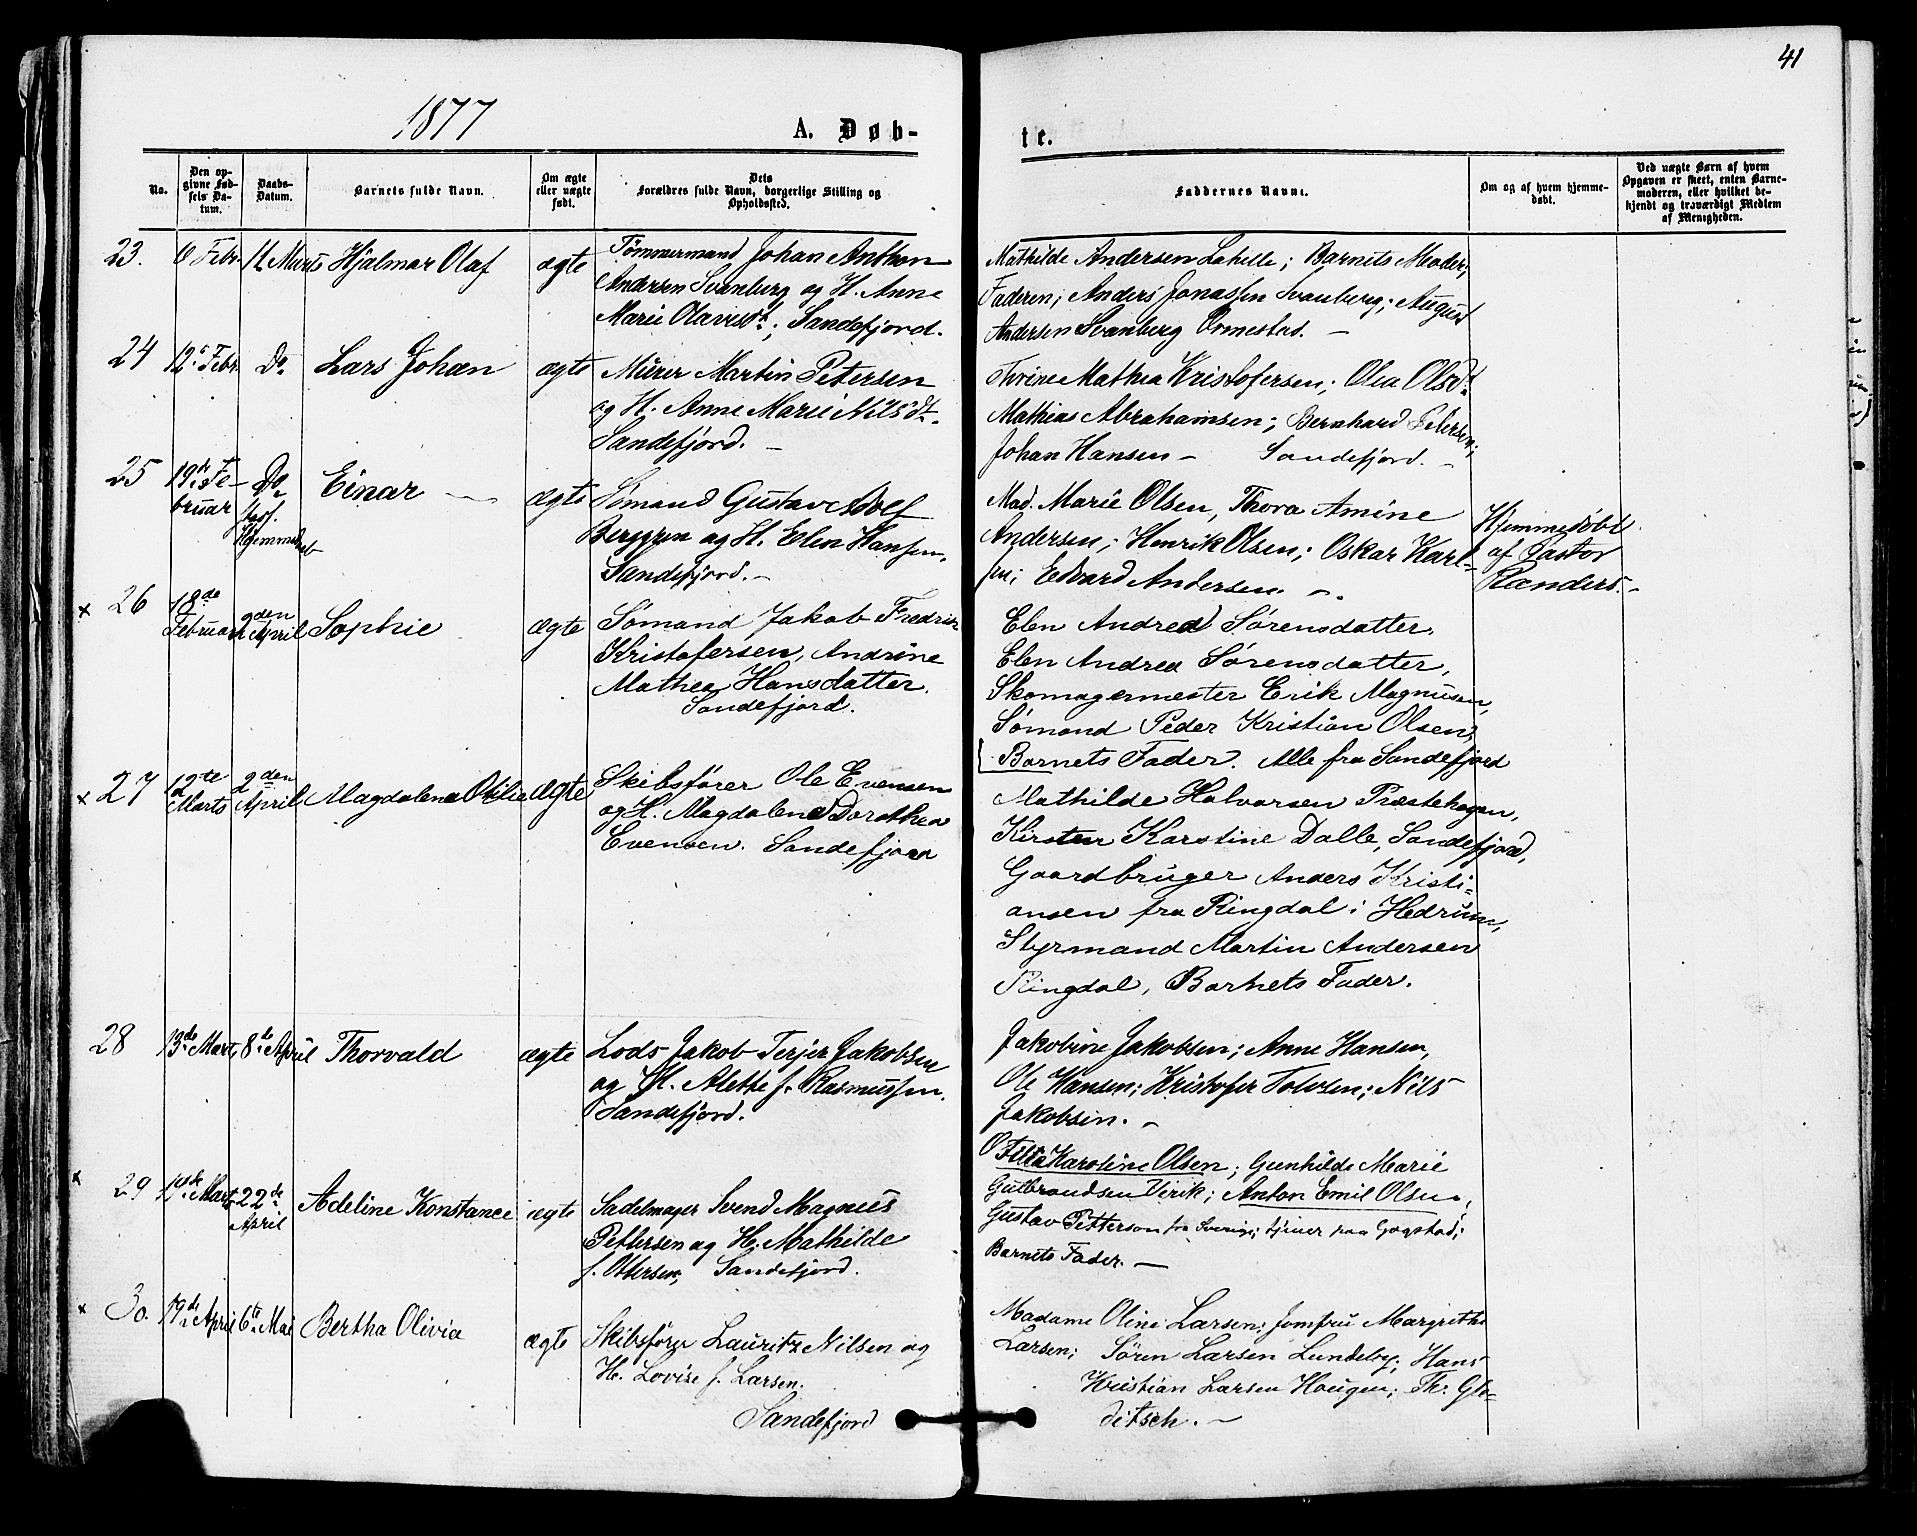 41
1877
A. Døb-
te.
No.
Den op-
givne Fød-
sels Da-
tum.
Daabs-
Datum.
Barnets fulde Navn.
Om ægte
eller uægte
født.
Dets
Forældres fulde Navn, borgerlige Stilling og
Opholdssted.
Faddernes Navne.
Om og af hvem hjemme-
døbt.
Ved uægte Børn af hvem
Opgaven er skeet, enten Barne-
moderen, eller hvilket be-
kjendt og troværdigt Medlem
af Menigheden.
23. Febr. 11 Marts Hjalmar Olaf ægte
Tømmermand Johan Anthon
Andersen Svanberg og H. Anne
Marie Olavesdt.; Sandefjord.
Mathilde Andersen Lahelle; Barnets Moder;
Faderen; Anders Jonassen Svanberg; August
Andersen Svanberg Ormestad. —
24 12te Febr. Do. Lars Johan ægte
Murer Martin Petersen
og H. Anne Marie Nilsdt.
Sandefjord. —
Thrine Mathea Kristofersen; Olea Olsdt.
Mathias Abrahamsen; Bernhard Petersen;
Johan Hansen — Sandefjord. —
25 19de Fe-
bruar
Do.
Hjemmedaab
Einar — ægte
Sømand Gustav Adolf
Berggren og H. Elen Hansen,
Sandefjord. —
Mad. Marie Olsen, Thora Amine
Andersen; Henrik Olsen; Oskar Karl-
sen; Edvard Andersen. —
Hjemmedøbt
af Pastor
Flænders. —
x 26 18de
Februar
2den
April
Sophie ægte
Sømand Jakob Fredrik
Kristofersen, Andrine
Mathea Hansdatter.
Sandefjord.
Elen Andrea Sørensdatter,
Elen Andrea Sørensdatter,
Skomagermester Erik Magnusen,
Sømand Peder Kristian Olsen,
Barnets Fader. Alle fra Sandefjord
x 27 12te
Marts
2den
April
Magdalene Otilie ægte
Skibsfører Ole Evensen
og H. Magdalene Dorothea
Evensen. Sandefjord
Mathilde Halvorsen Præstehagen,
Kirsten Karstine Dalle, Sandefjord,
Gaardbruger Anders Kristi-
ansen fra Ringdal i Hedrum,
Styrmand Martin Andersen
Ringdal, Barnets Fader.
28 13de Marts 8de April Thorvald ægte
Lods Jakob Terjer Jakobsen
og H. Alethe f. Rasmussen.
Sandefjord.
Jakobine Jakobsen; Anne Hansen,
Ole Hansen; Kristofer Tolvsen; Nils
Jakobsen. —
x 29 Marts 22de
April
Adeline Konstance ægte
Sadelmager Svend Magnus
Pettersen og H. Mathilde
f. Ottersen, Sandefjord.
Karoline Olsen; Gunhilde Marie
Gulbrandsen Virik; Anton Emil Olsen,
Gustav Petterson fra Sverige; tjener paa Gogstad;
Barnets Fader. —
x 30. 19de April 6te Mai Bertha Olivia ægte
Skibsfører Lauritz Nilsen og
H. Lovise f. Larsen.
Sandefjord
Madame Oline Larsen; Jomfru Margrethe
Larsen; Søren Larsen Lundeby; Hans
Kristian Larsen Haugen; Thr. Glo-
ditsch. —